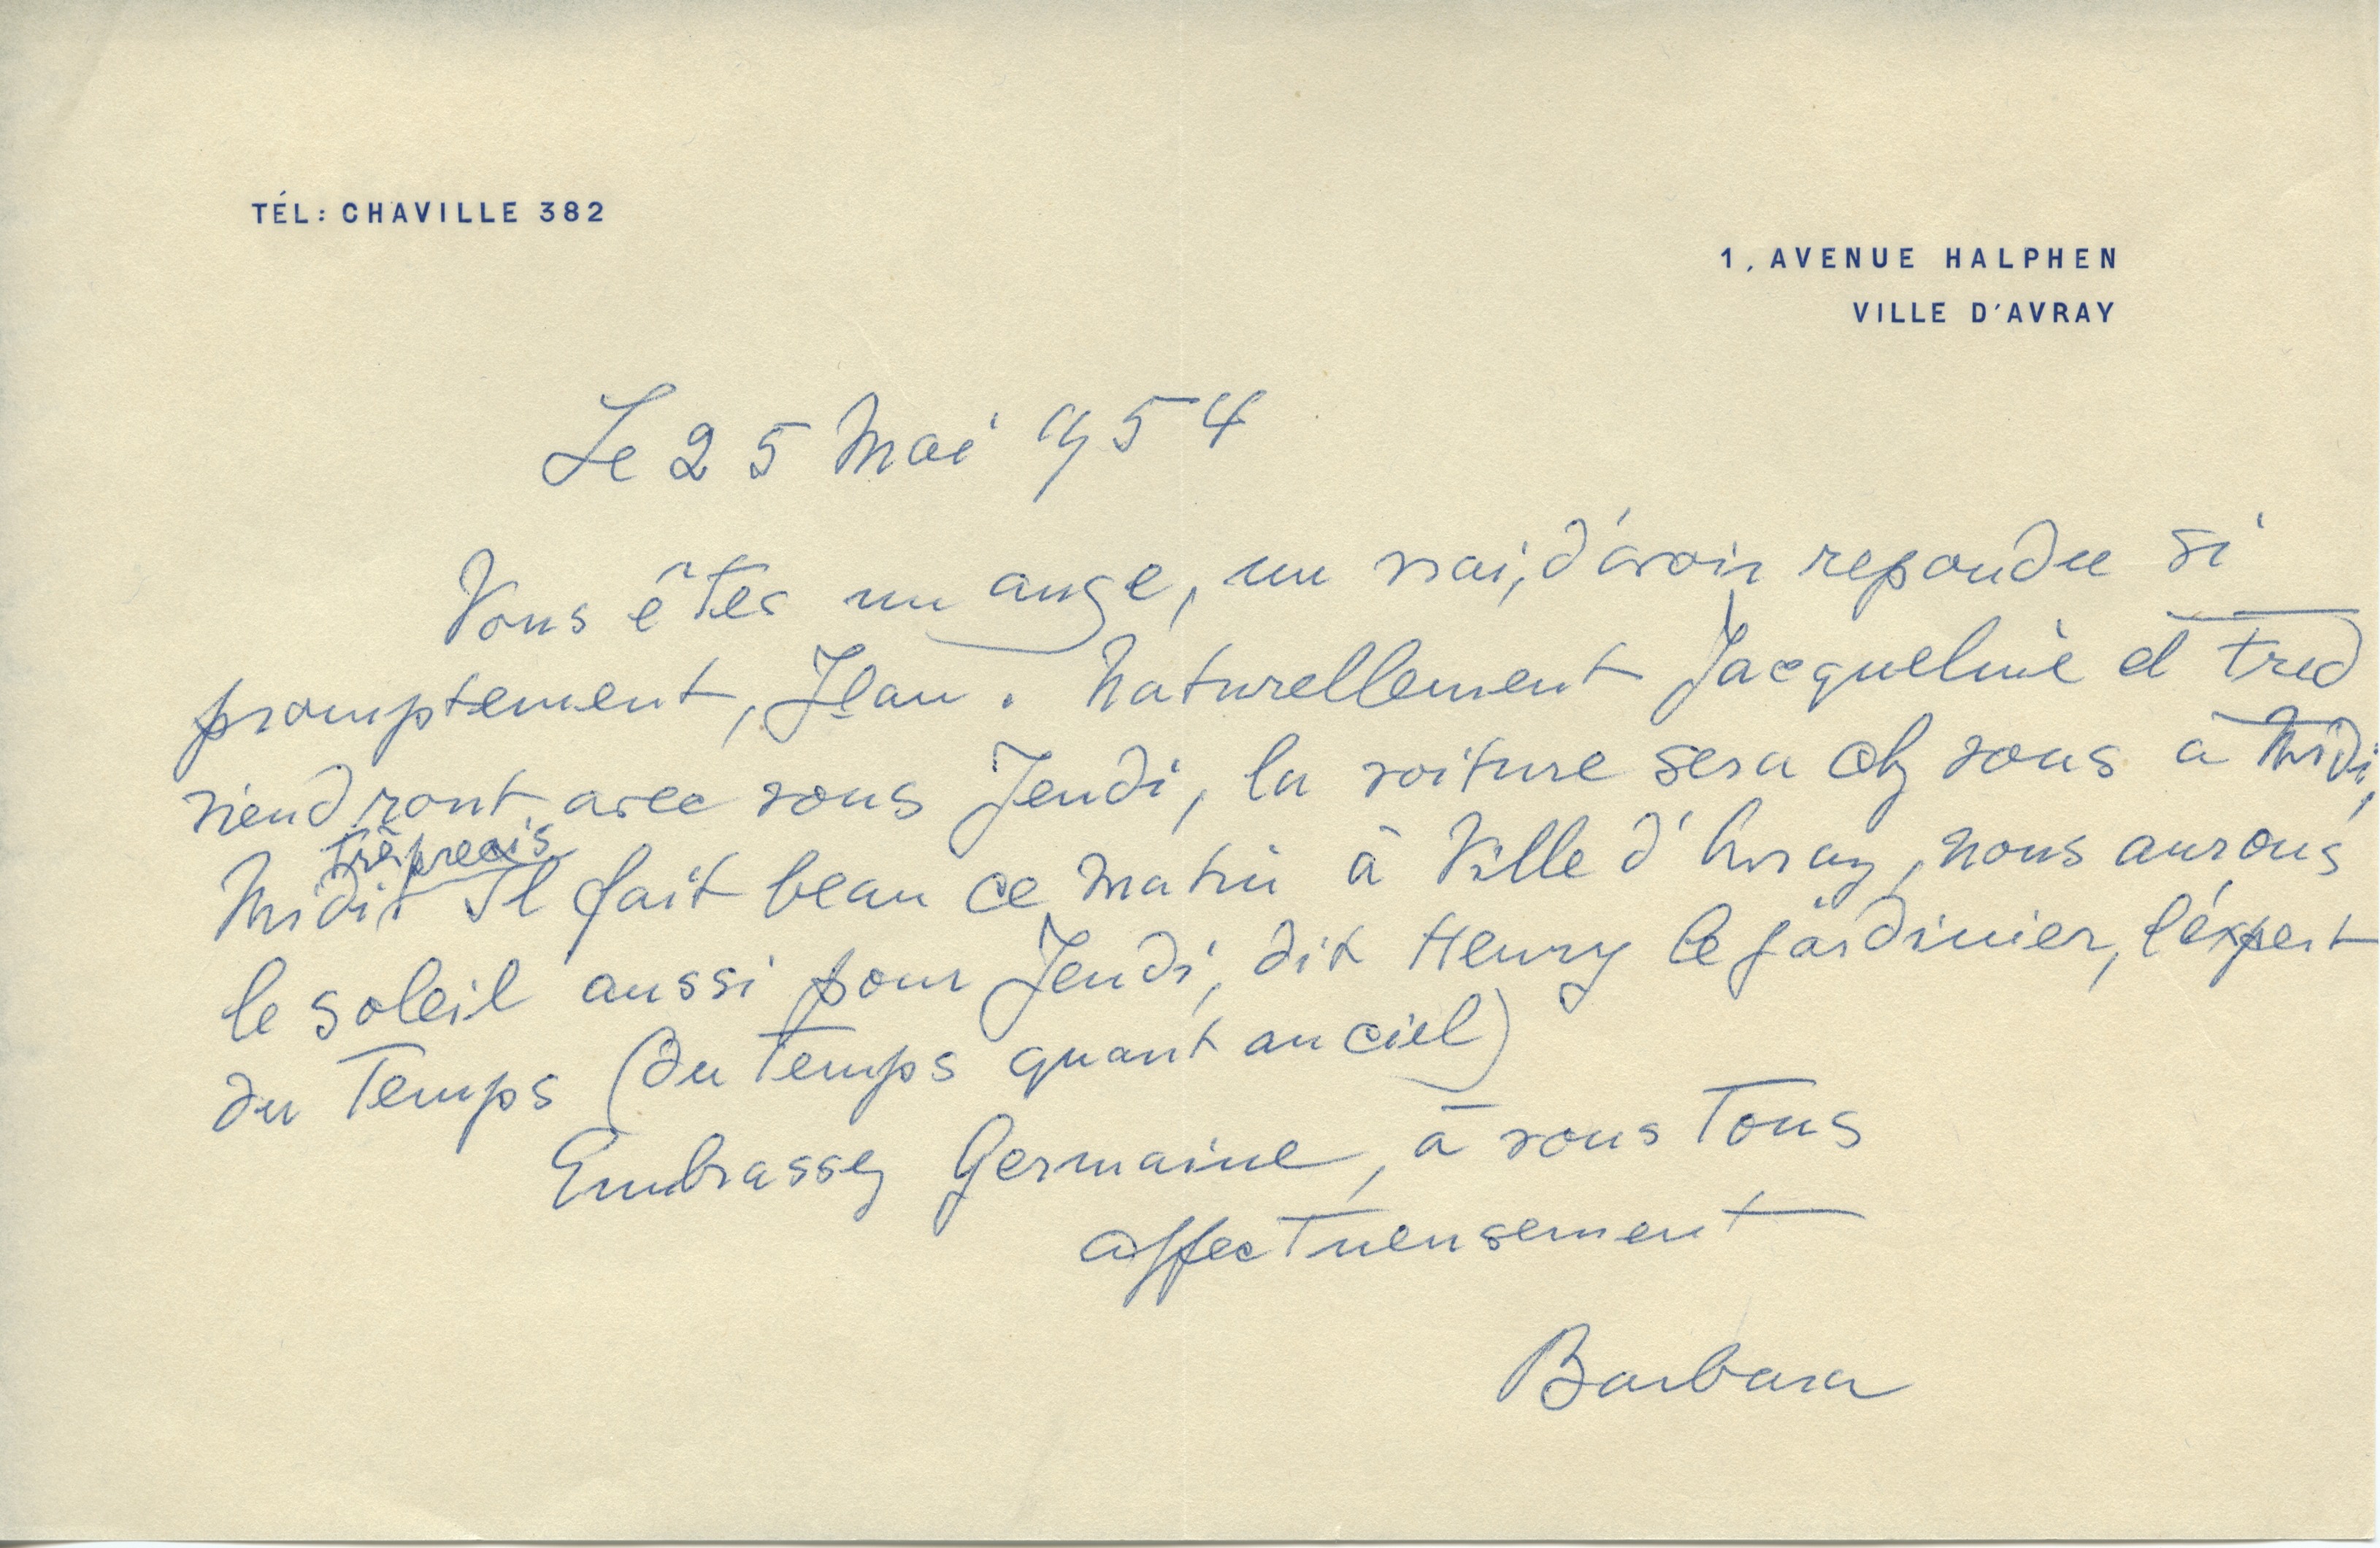 TÉL: CHAVILLE 382
1, AVENUE HALPHEN
VILLE D'AVRAY
Le 25 Mai 1954
Vous êtes un ange, un vrai, d'avoir repondu si
promptement, Jean. Naturellement Jacqueline et Fred
viendront avec vous Jeudi, la voiture sera chz vous à Midi,
très precis
Midi. Il fait beau ce matin à Ville d'Avray, nous aurons
le soleil aussi pour Jeudi, dit Henry le jardinier, l'éxpert
du Temps (du Temps quant au ciel)
Embrassez Germaine, à vous Tous
affectueusement
Barbara